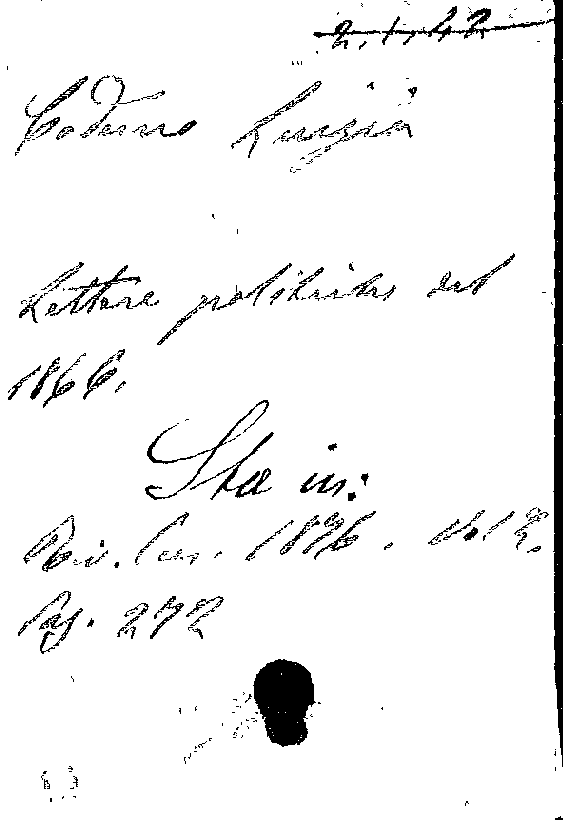 2.1.42
Codemo Luigia
Lettere politiche del
1866.
Sta in:
Riv. Eur. 1876. Vol 2.
Pag. 272